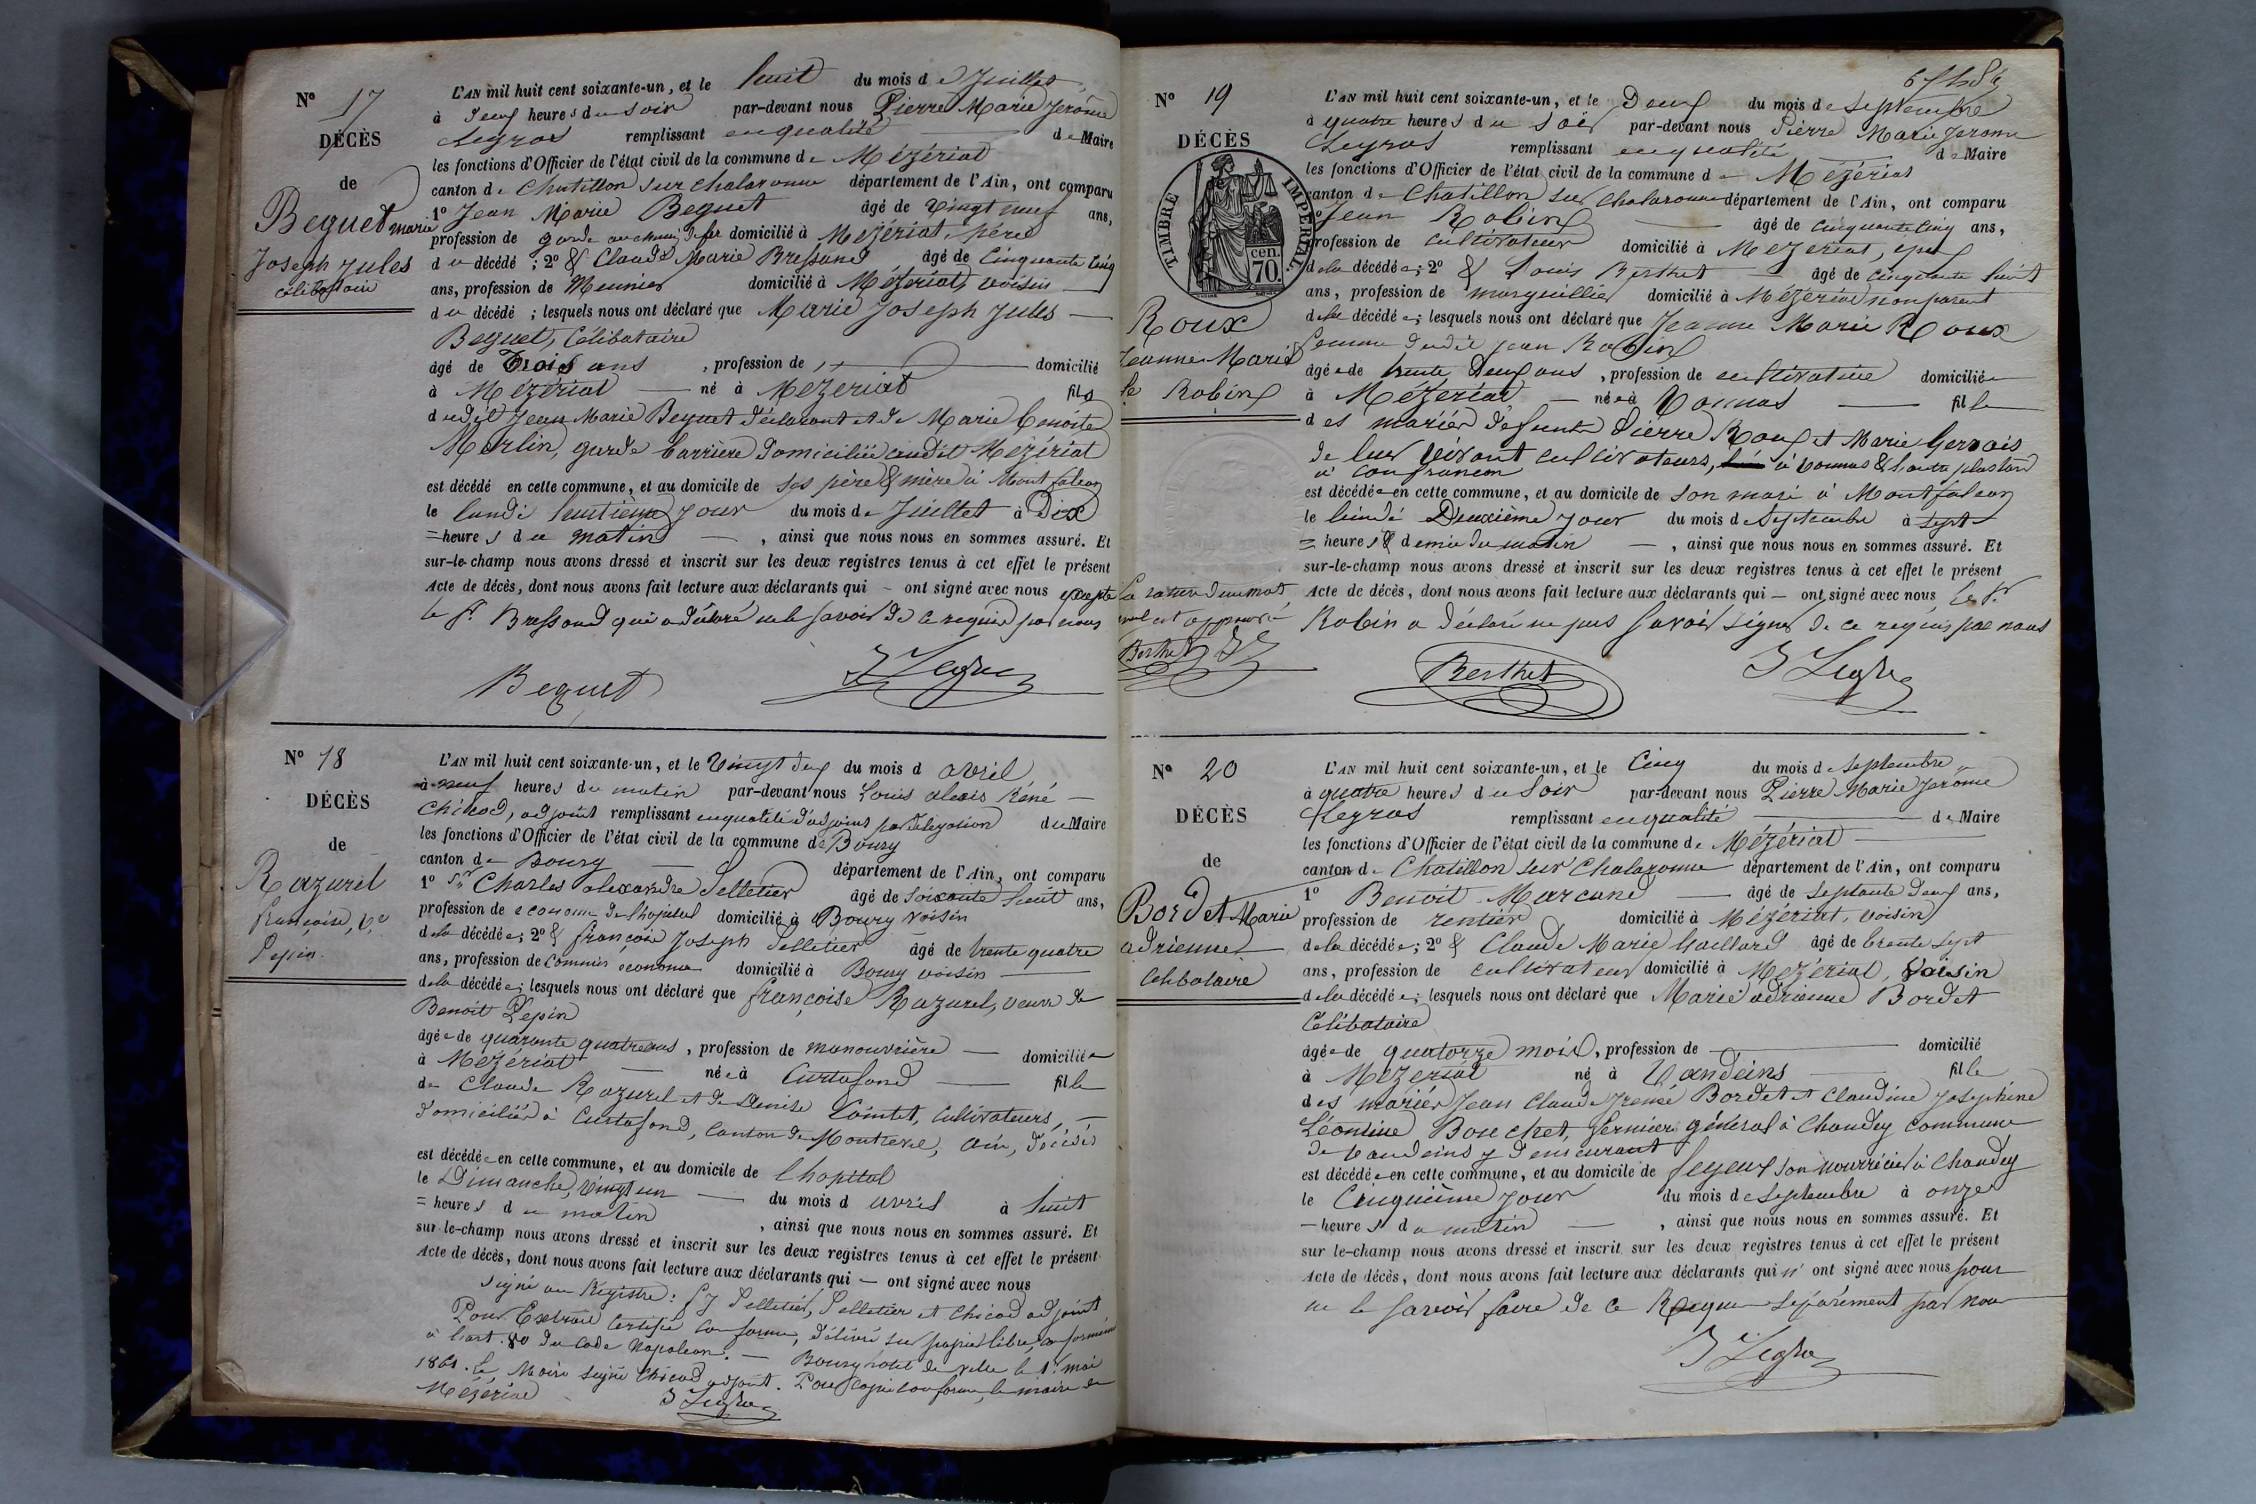 Nº 17
DÉCÈS
de
Bequet Marie
Joseph Jules
célibataire
L'AN mil huit cent soixante-un, et le huit du mois de Juillet
à deux heures du soir par-devant nous Pierre Marie Jerôme
Legras remplissant en qualité de Maire
les fonctions d'Officier de l'état civil de la commune de Mézériat
canton de Chatillon sur chalaronne département de l'Ain, ont comparu
1º Jean Marie Bequet âgé de vingt neuf ans,
profession de garde au chemin de fer domicilié à Mézériat, père
du décédé ; 2º & Claude Marie Bressand âgé de Cinquante cinq
ans, profession de Meunier domicilié à Mézériat, voisin
du décédé ; lesquels nous ont déclaré que Marie Joseph Jules
Bequet, Célibataire
âgé de Trois ans , profession de domicilié
à Mézériat né à Mézériat fils
dudit Jean Marie Bequet déclarant et de Marie Benoite
Merlin, garde barrière domiciliée audit Mézériat
est décédé en cette commune, et au domicile de ses père & mère à Montfalcon
le lundi huitième jour du mois de Juillet à Dix
= heures du matin , ainsi que nous nous en sommes assuré. Et
sur-le-champ nous avons dressé et inscrit sur les deux registres tenus à cet effet le présent
Acte de décès, dont nous avons fait lecture aux déclarants qui ont signé avec nous excepté
le Sr Bressand qui a déclaré ne le savoir de ce requis par nous
Bequet J Legras
Nº 18
DÉCÈS
de
Razurel
françoise, Ve
Pepin
L'AN mil huit cent soixante-un, et le Vingt deux du mois d avril
à neuf heures du matin par-devant nous Louis alexis Réné
Chicod, adjoint remplissant en qualité d'adjoint par délégation du Maire
les fonctions d'Officier de l'état civil de la commune de Bourg
canton de Bourg département de l'Ain, ont comparu
1º Sr Charles alexandre Pelletier âgé de soixante huit ans,
profession de économe de l'hopital domicilié à Bourg voisin
de la décédée; 2º & françois Joseph Pelletier âgé de trente quatre
ans, profession de commis économe domicilié à Bourg voisin
de la décédée; lesquels nous ont déclaré que françoise Razurel, veuve de
Benoit Pepin
âgée de quarante quatre ans , profession de manouvrière domiciliée
à Mézériat née à Curtafond fille
de Claude Razurel et de Denise Cointet, cultivateurs,
domiciliés à Curtafond, canton de Montrevel, ain, décédés
est décédée en cette commune, et au domicile de l'hopital
le Dimanche, vingt un du mois d avril à huit
= heures du matin , ainsi que nous nous en sommes assuré. Et
sur le-champ nous avons dressé et inscrit sur les deux registres tenus à cet effet le présent
Acte de décès, dont nous avons fait lecture aux déclarants qui ont signé avec nous
signé au Registre: f J Pelletier, Pelletier et Chicod adjoint
Pour Extrait certifié conforme, délivré sur papier libre, conformément
à l'art. 80 du Code Napoléon. Bourg hotel de ville le 1er mai
1861. Le Maire signé Chicod adjoint. Pour copie conforme, le maire de
Mézériat J Legras
67
Nº 19
DÉCÈS
TIMBRE IMPÉRIAL
cen.
70
Roux
Jeanne Marie
fe Robin
L'AN mil huit cent soixante-un, et le Deux du mois de septembre
à quatre heures du soir par-devant nous Pierre Marie Jerome
Legras remplissant en qualité de Maire
les fonctions d'Officier de l'état civil de la commune de Mézériat
canton de Chatillon sur Chalaronne département de l'Ain, ont comparu
1º Jean Robin âgé de cinquante cinq ans,
profession de cultivateur domicilié à Mézériat, époux
de la décédée; 2º & Louis Berthet âgé de cinquante huit
ans, profession de marguillier domicilié à Mézériat non parent
de la décédée; lesquels nous ont déclaré que Jeanne Marie Roux
femme dudit Jean Robin
âgée de trente Deux ans , profession de cultivatrice domiciliée
à Mézériat née à Vonnas fille
des mariés défunts Pierre Roux et Marie Gervais
de leur vivant cultivateurs, à Vonnas & l'autre
à confrançon
est décédée en cette commune, et au domicile de son mari à Montfalcon
le lundi Deuxième jour du mois de septembre à sept
= heures & demie du matin , ainsi que nous nous en sommes assuré. Et
sur-le-champ nous avons dressé et inscrit sur les deux registres tenus à cet effet le présent
Acte de décès, dont nous avons fait lecture aux déclarants qui ont signé avec nous, le Sr
Robin a déclaré ne pas savoir signer de ce requis par nous
La rature d'un mot
nul est approuvé
Berthet JL
Berthet J Legras
Nº 20
DÉCÈS
de
Bordet Marie
adrienne
Célibataire
L'AN mil huit cent soixante-un, et le Cinq du mois de septembre
à quatre heures du soir par-devant nous Pierre Marie Jerôme
Legras remplissant en qualité de Maire
les fonctions d'Officier de l'état civil de la commune de Mézériat
canton de Chatillon sur Chalaronne département de l'Ain, ont comparu
1º Benoit Marcand âgé de septante deux ans,
profession de rentier domicilié à Mézériat, voisin
de la décédée; 2º & Claude Marie Gaillard âgé de trente sept
ans, profession de cultivateur domicilié à Mézériat, Voisin
de la décédée; lesquels nous ont déclaré que Marie adrienne Bordet
Célibataire
âgée de quatorze mois, profession de domicilié
à Mézériat né à Vandeins fille
des mariés Jean Claude Irénée Bordet et Claudine Joséphine
Léontine Bouchet, fermier général à Chandey commune
de Vandeins y demeurant
est décédée en cette commune, et au domicile de feyeux son nourricier à Chandey
le Cinquième jour du mois de septembre à onze
heures du matin , ainsi que nous nous en sommes assuré. Et
sur le-champ nous avons dressé et inscrit sur les deux registres tenus à cet effet le présent
Acte de décès, dont nous avons fait lecture aux déclarants qui n' ont signé avec nous pour
ne le savoir faire de ce Requis séparément par nous
J Legras